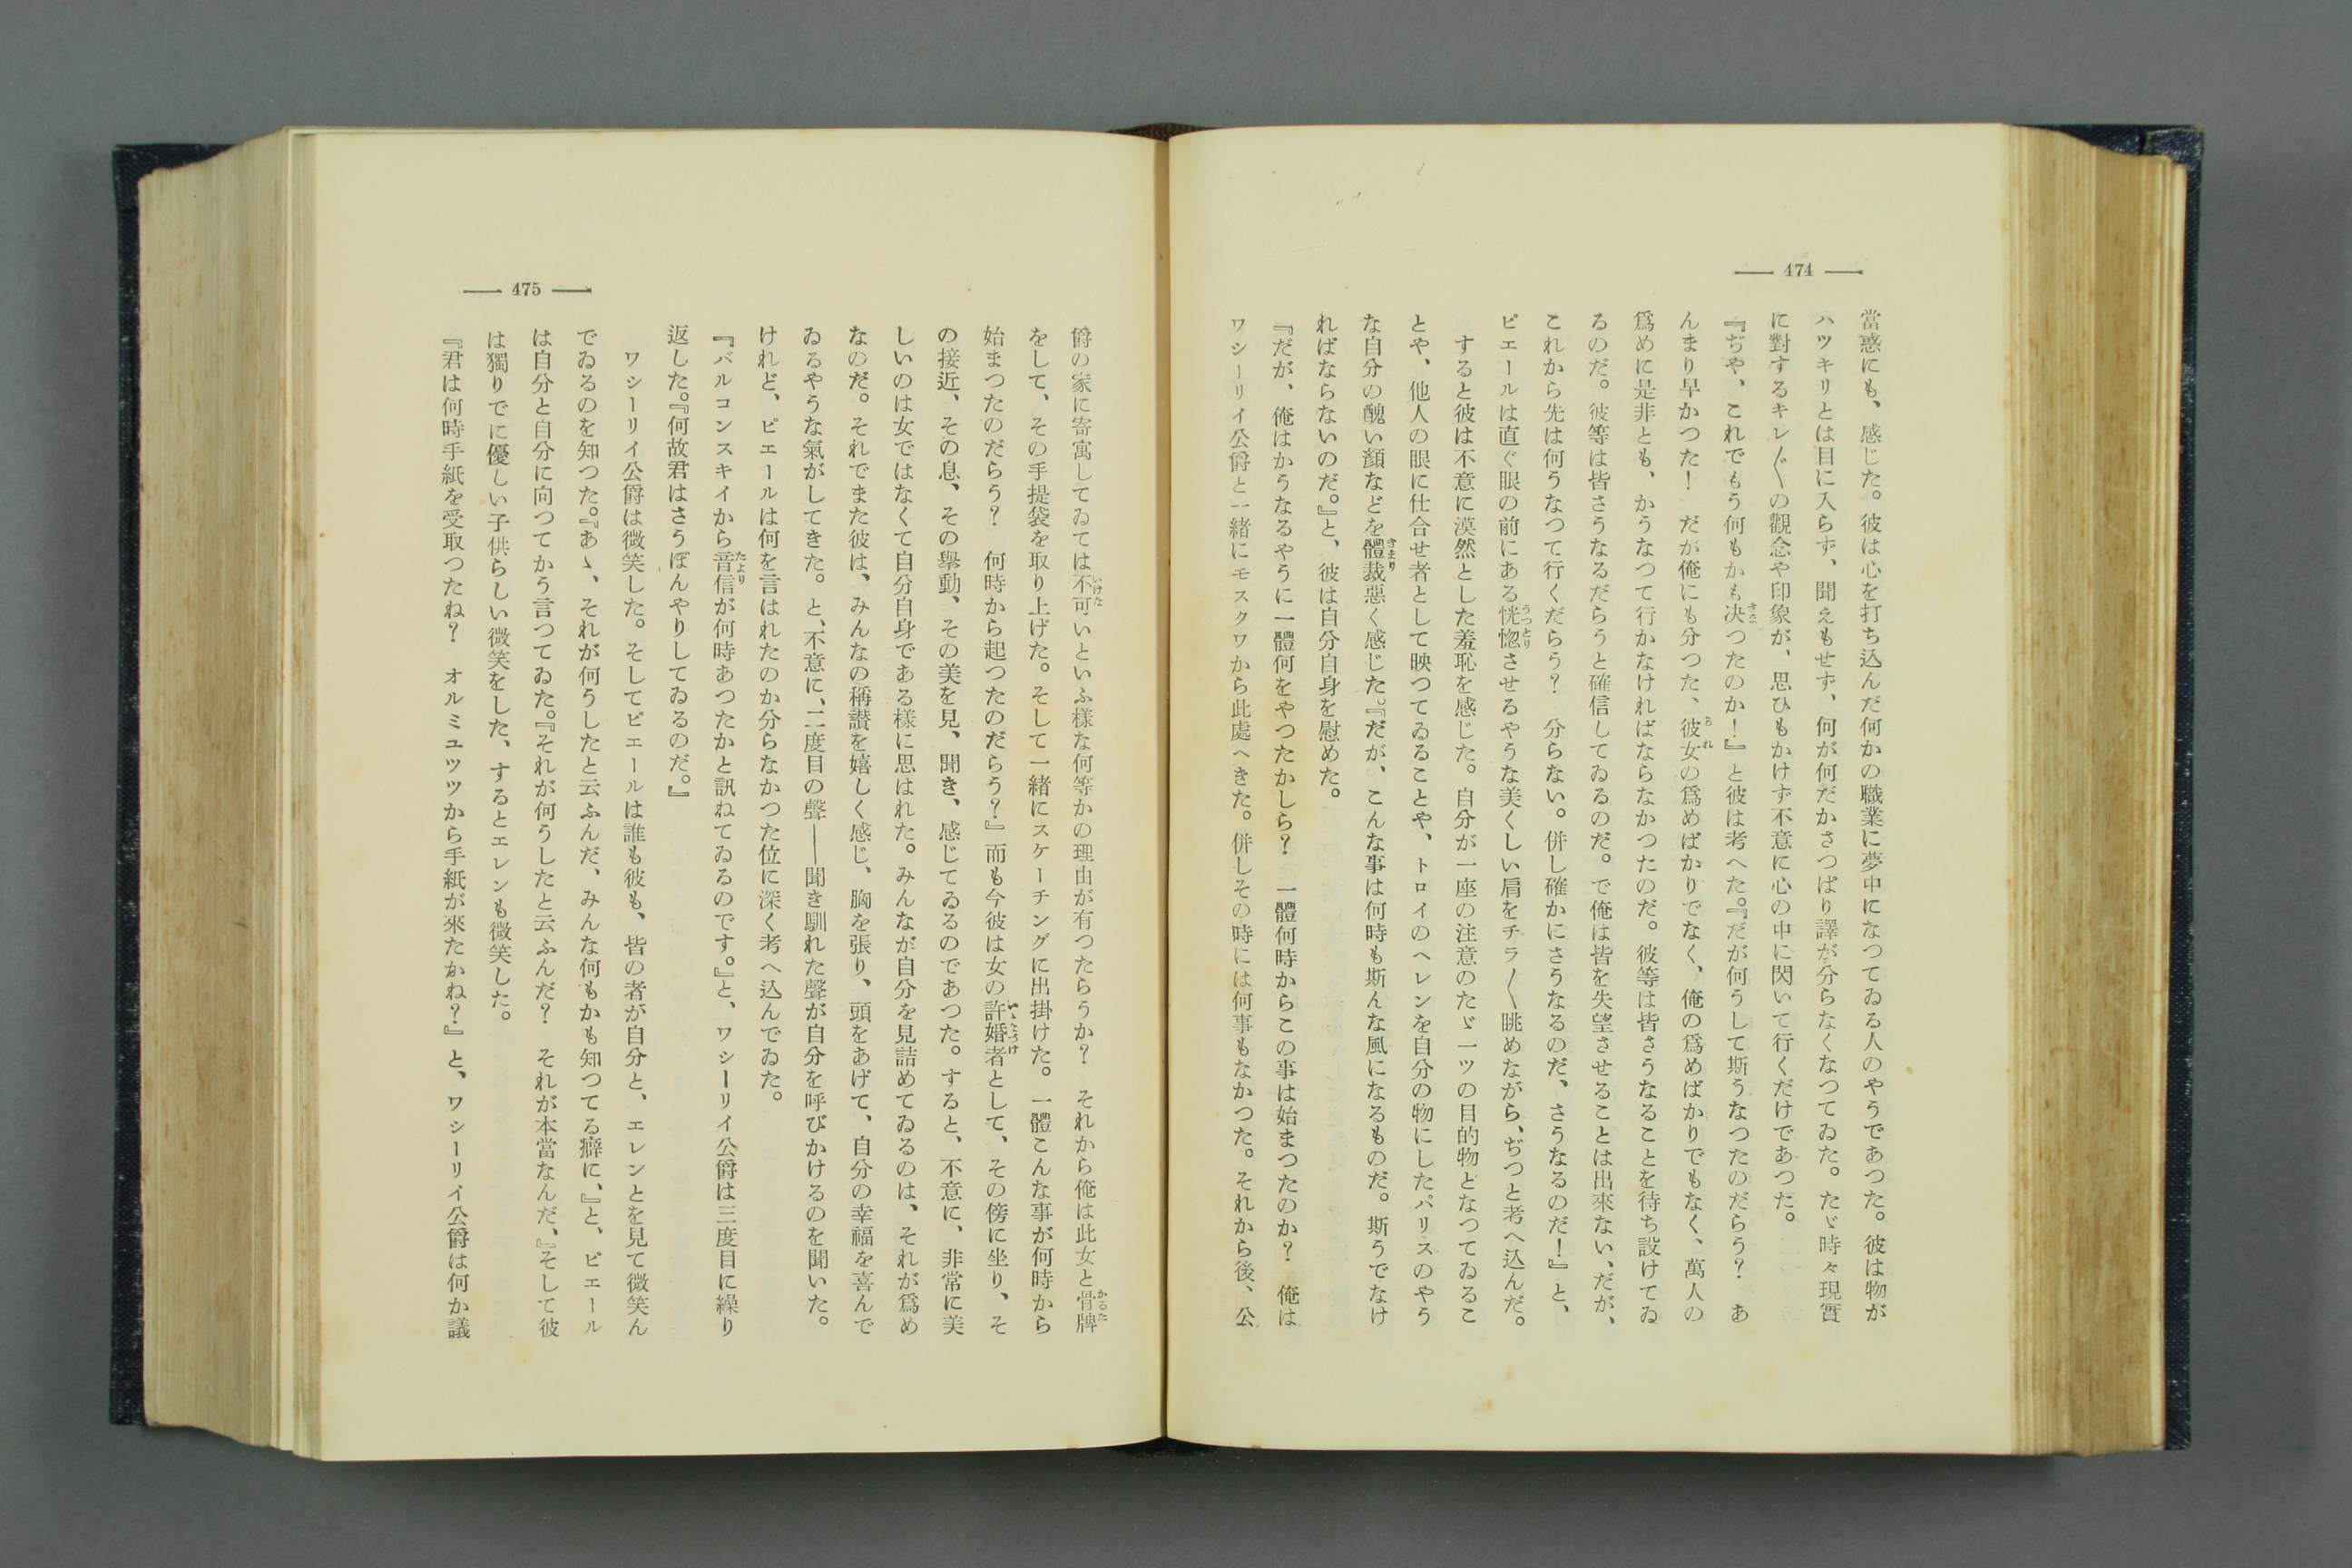 — 474 —
當惑にも、感じた。彼は心を打ち込んだ何かの職業に夢中になつてゐる人のやうであつた。彼は物が
ハツキリとは目に入らず、聞えもせず、何が何だかさつぱり譯が分らなくなつてゐた。たゞ時々現實
に對するキレ〴〵の觀念や印象が、思ひもかけず不意に心の中に閃いて行くだけであつた。
『ぢや、これでもう何もかも決つたのか！』と彼は考へた。『だが何うして斯うなつたのだらう？　あ
んまり早かつた！　だが俺にも分つた、彼女の爲めばかりでなく、俺の爲めばかりでもなく、萬人の
爲めに是非とも、かうなつて行かなければならなかつたのだ。彼等は皆さうなることを待ち設けてゐ
るのだ。彼等は皆さうなるだらうと確信してゐるのだ。で俺は皆を失望させることは出來ない、だが、
これから先は何うなつて行くだらう？　分らない。併し確かにさうなるのだ、さうなるのだ！』と、
ピエールは直ぐ眼の前にある恍惚させるやうな美くしい肩をチラ〳〵眺めながら、ぢつと考へ込んだ。
すると彼は不意に漠然とした羞恥を感じた。自分が一座の注意のたゞ一ツの目的物となつてゐるこ
とや、他人の眼に仕合せ者として映つてゐることや、トロイのヘレンを自分の物にしたパリスのやう
な自分の醜い顏などを體裁惡く感じた。『だが、こんな事は何時も斯んな風になるものだ。斯うでなけ
ればならないのだ。』と、彼は自分自身を慰めた。
『だが、俺はかうなるやうに一體何をやつたかしら？　一體何時からこの事は始まつたのか？　俺は
ワシーリイ公爵と一緒にモスクワから此處へきた。併しその時には何事もなかつた。それから後、公
— 475 —
爵の家に寄寓してゐては不可いといふ樣な何等かの理由が有つたらうか？　それから俺は此女と骨牌
をして、その手提袋を取り上げた。そして一緒にスケーチングに出掛けた。一體こんな事が何時から
始まつたのだらう？　何時から起つたのだらう？』而も今彼は女の許婚者として、その傍に坐り、そ
の接近、その息、その擧動、その美を見、聞き、感じてゐるのであつた。すると、不意に、非常に美
しいのは女ではなくて自分自身である樣に思はれた。みんなが自分を見詰めてゐるのは、それが爲め
なのだ。それでまた彼は、みんなの稱讃を嬉しく感じ、胸を張り、頭をあげて、自分の幸福を喜んで
ゐるやうな氣がしてきた。と、不意に、二度目の聲——聞き馴れた聲が自分を呼びかけるのを聞いた。
けれど、ピエールは何を言はれたのか分らなかつた位に深く考へ込んでゐた。
『バルコンスキイから音信が何時あつたかと訊ねてゐるのです。』と、ワシーリイ公爵は三度目に繰り
返した。『何故君はさうぼんやりしてゐるのだ。』
ワシーリイ公爵は微笑した。そしてピエールは誰も彼も、皆の者が自分と、エレンとを見て微笑ん
でゐるのを知つた。『あゝ、それが何うしたと云ふんだ、みんな何もかも知つてる癖に、』と、ピエール
は自分と自分に向つてかう言つてゐた。『それが何うしたと云ふんだ？　それが本當なんだ、』そして彼
は獨りでに優しい子供らしい微笑をした、するとエレンも微笑した。
『君は何時手紙を受取つたね？　オルミユツツから手紙が來たかね？』と、ワシーリイ公爵は何か議